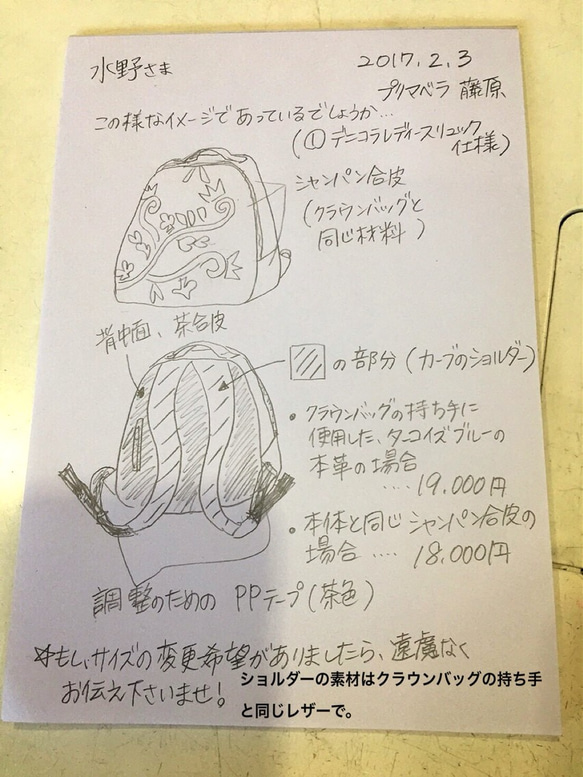 水野さま
2017.2.3
プリマベラ 藤原
この様なイメージであっているでしょうか…
(①デニコラレディースリュック
仕様)
シャンパン合皮
(クラウンバッグと
同じ材料)
背中面、茶合皮
の部分(カーブのショルダー)
・クラウンバッグの持ち手に
使用した、ターコイズブルーの
本革の場合
‥‥19,000円
・本体と同じシャンパン合皮の
場合‥‥18,000円
調整のための PPテープ(茶色)
☆もし、サイズの変更希望がありましたら、遠慮なく
お伝え下さいませ!
ショルダーの素材はクラウンバッグの持ち手
と同じレザーで。